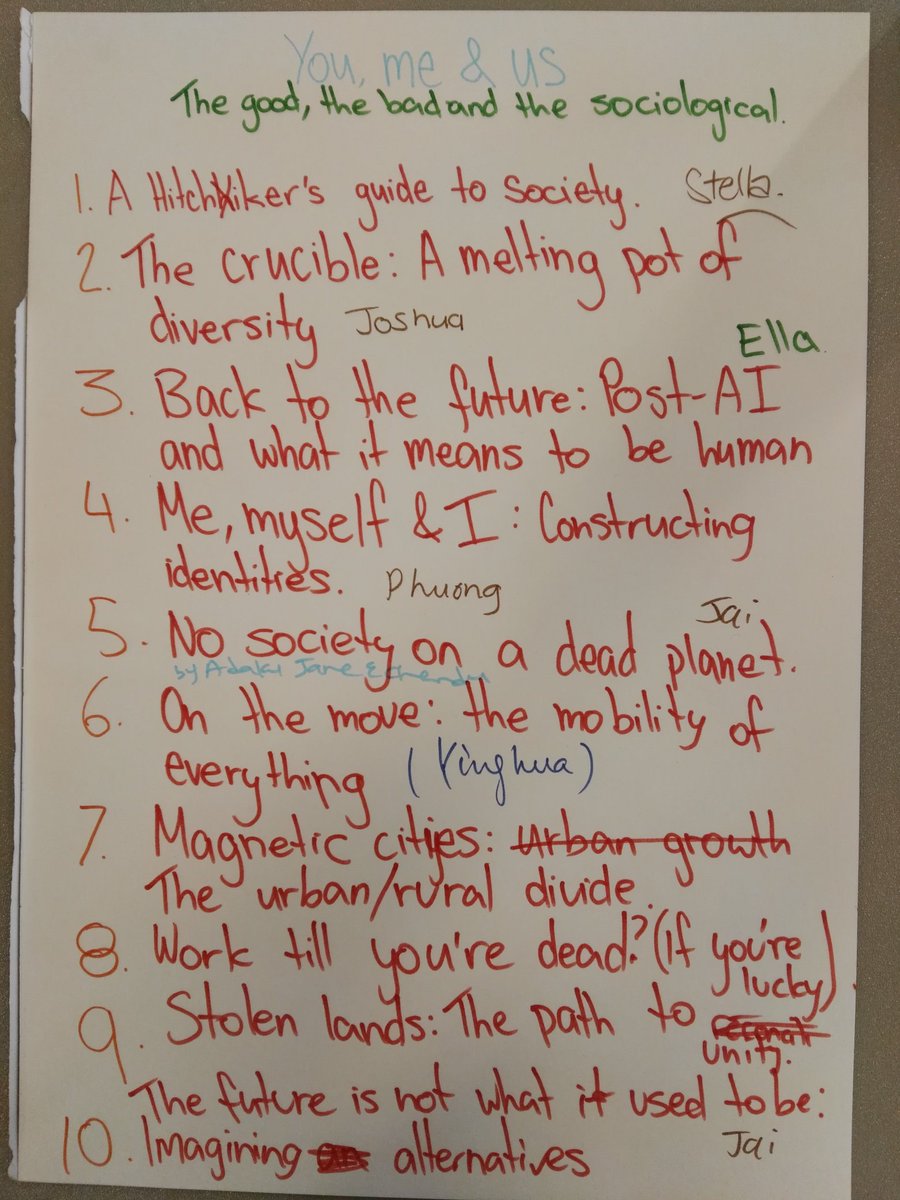 You, me & us
The good, the bad and the sociological.
1. A Hitchhiker's guide to society. Stella.
2. The crucible: A melting pot of
diversity Joshua
Ella
3. Back to the future: Post-AI
and what it means to be human
4. Me, myself & I: Constructing
identities. Phuong
Jai
5. No society on a dead planet.
by Adaku Jane &
6. On the move: the mobility of
everything (Yinghua)
7. Magnetic cities: Urban growth
The urban/rural divide.
8. Work till you're dead? (If you're
lucky).
9. Stolen lands: The path to
unity.
The future is not what it used to be:
10. Imagining alternatives Jai